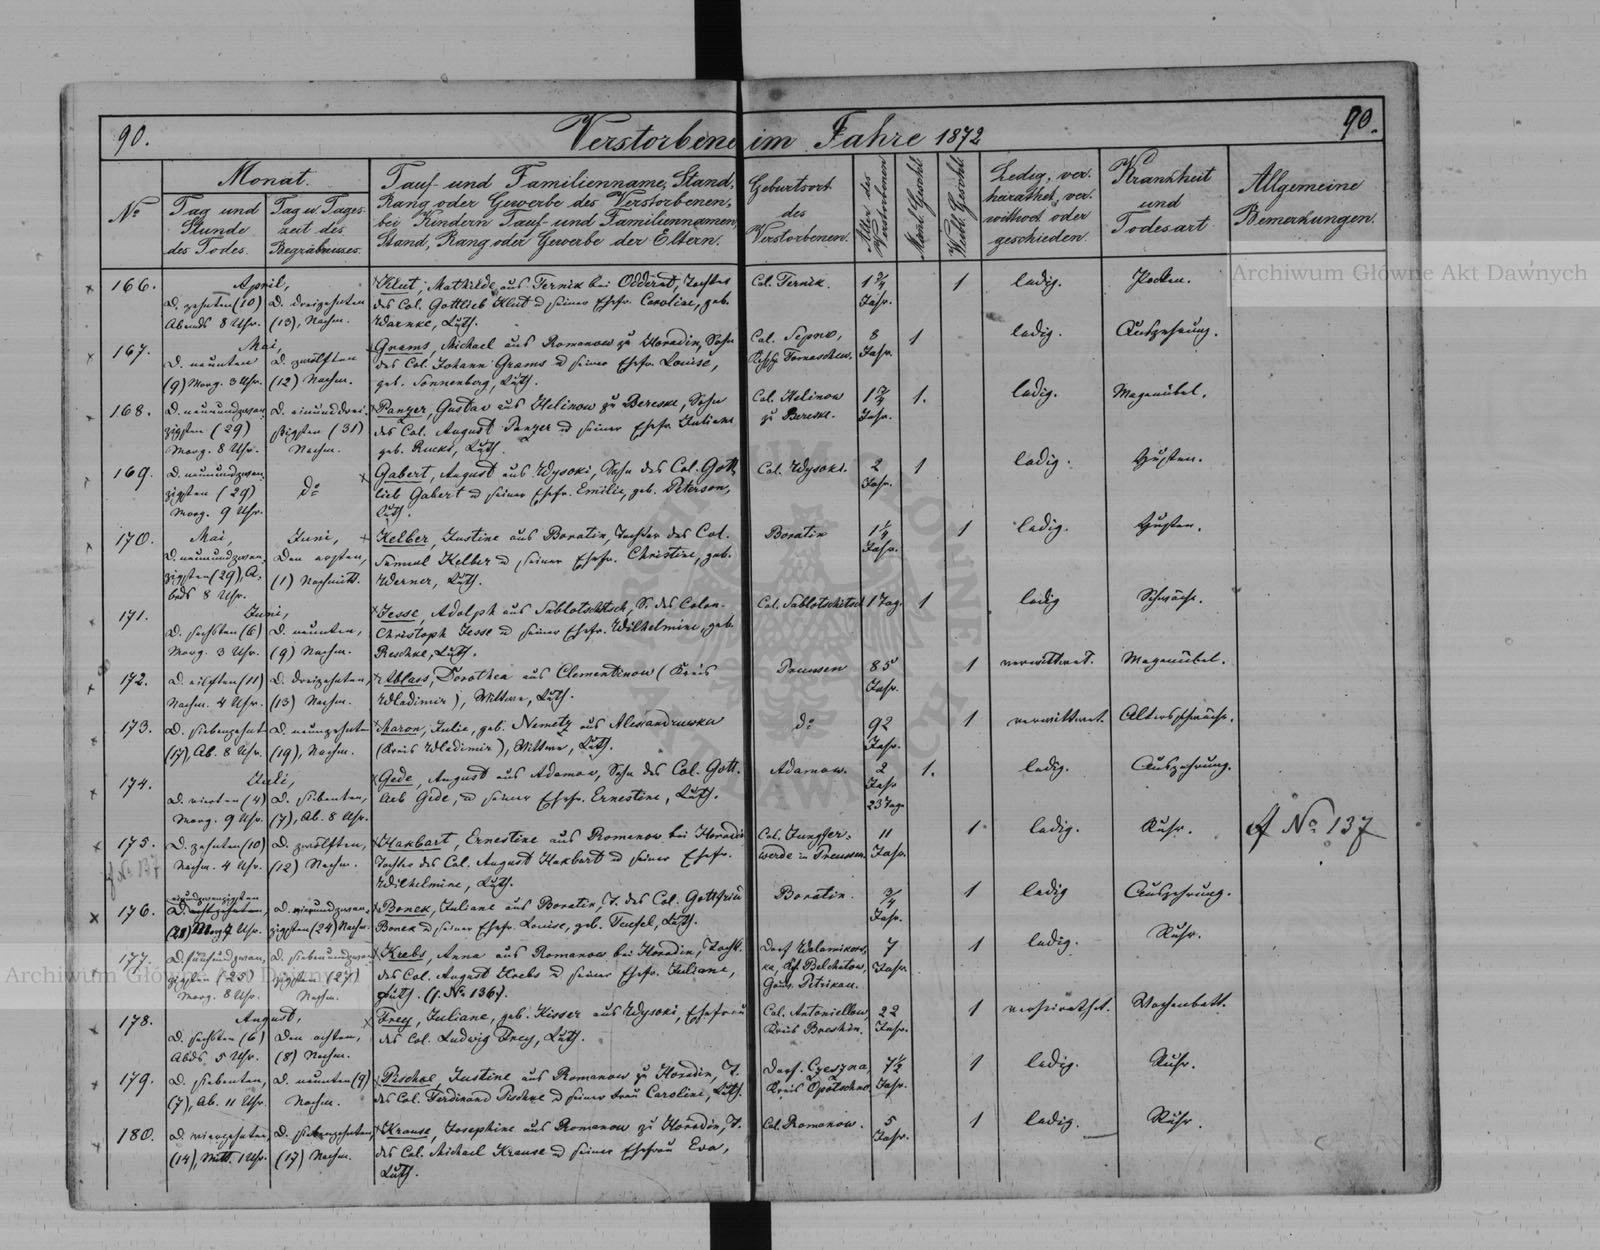 90.
Verstorbene im Jahre 1872
90.
No
Monat.
Tag und Stunde des Todes.
Tag u. Tageszeit des Begräbnisses.
Tauf- und Familienname, Stand,
Rang oder Gewerbe des Verstorbenen,
bei Kindern Tauf- und Familiennamen,
Stand, Rang oder Gewerbe der Eltern.
Geburtsort des Verstorbenen.
Alter des Verstorbenen
Männl. Geschl.
Weibl. Geschl.
Ledig, verheirathet, verwittwet oder geschieden
Krankheit und Todesart
Allgemeine Bemerkungen.
Archiwum Główne Akt Dawnych
166. April,
D. zehnten (10) Abends 8 Uhr.
D. dreizehnten (13), Nachm.
Klut, Mathilde aus Ternik bei Odderat, Tochter
des Col. Gottlieb Klut u seiner Ehefr. Caroline, geb.
Warnke, Luth.
Col. Ternik. 1 3/4 Jahr. 1 ledig. Pocken.
167. Mai,
D. neunten (9) Morg. 3 Uhr.
D. zwölften (12) Nachm.
Grams, Michael aus Romanow zu Horadin, Sohn
des Col. Johann Grams u seiner Ehefr. Louise,
geb. Sonnenberg, Luth.
8 Jahr. 1 ledig. Auszehrung.
168. D. neunundzwanzigsten (29) Morg. 8 Uhr.
D. einunddreissigsten (31) Nachm.
Panzer, Gustav aus Helinow zu Bereske, Sohn
des Col. August Panzer u seiner Ehefr. Juliane
geb. Rucks, Luth.
Col. Helinow zu Bereske. Jahr. 1. ledig. Magenübel.
169. D. neunundzwanzigsten (29) Morg. 9 Uhr.
do
Gabert, August aus Wysoki, Sohn des Col. Gottlieb
Gabert u seiner Ehefr. Emilie, geb. Peterson,
Luth.
Col. Wysoki. 2 Jahr. 1 ledig. Husten.
170. Mai, Juni,
D. neunundzwanzigsten (29), Abds 8 Uhr.
Den ersten, (1) Nachmitt.
Kelber, Justine aus Boratin, Tochter des Col.
Samuel Kelber u seiner Ehefr. Christine, geb.
Werner, Luth.
Boratin 1 1/4 Jahr. 1 ledig. Husten.
171. Juni,
D. sechsten (6) Morg. 3 Uhr.
D. neunten, (9) Nachm.
Jesse, Adolph aus Sablotschitsch, S. des Colon.
Christoph Jesse u seiner Ehefr. Wilhelmine, geb.
Reschke, Luth.
Col. Sablotschitsch 1 Tag. 1 ledig Schwäche.
172. D. eilften (11) Nachm. 4 Uhr.
D. dreizehnten, (13) Nachm.
Ablass, Dorothea aus Clementinow (Kreis
Wladimir), Wittwe, Luth.
Preussen 85 Jahr. 1 verwittwet. Magenübel.
173. D. siebenzehnt. (17), Ab. 8 Uhr.
D. neunzehnten (19), Nachm.
Aaron, Julie, geb. Nemetz aus Alexandruwka
(Kreis Wladimir), Wittwe, Luth.
do 92 Jahr. 1 verwittwet. Altersschwäche.
174. Juli,
D. vierten (4) Morg. 9 Uhr.
D. siebenten, (7), Ab. 8 Uhr.
Gede, August aus Adamow, Sohn des Col. Gottlieb
Gede, u seiner Ehefr. Ernestine, Luth.
Adamow. 2 Jahr 23 Tage 1. ledig. Auszehrung.
175. D. zehnten (10) Nachm. 4 Uhr.
D. zwölften, (12) Nachm.
Hakbart, Ernestine aus Romanow bei Horadin
Tochter des Col. August Hakbart u seiner Ehefr.
Wilhelmine, Luth.
Col. Jungferwerde in Preussen. 11 Jahr. 1 ledig. Ruhr. cf No 137
cf No 137
176. einundzwanzigsten (21) Morg. Uhr.
D. vierundzwanzigsten (24) Nachm.
Bonek, Juliane aus Boratin, T. des Col. Gottfried
Bonek u seiner Ehefr. Louise, geb. Teufel, Luth.
Boratin. 3/4 Jahr. 1 ledig Auszehrung.
177. D. fünfundzwanzigsten (25) Morg. 8 Uhr.
D. siebenundzwanzigsten (27) Nachm.
Krebs, Anna aus Romanow bei Horadin, Tocht.
des Col. August Krebs u seiner Ehefr. Juliane,
Luth. (f. No 136).
Dorf Belchatow, Gouv. Petrikau. 7 Jahr. 1 ledig. Ruhr.
Archiwum Główne Akt Dawnych
178. August,
D. sechsten (6) Abds. 5 Uhr.
Den achten, (8) Nachm.
Frey, Juliane, geb. Kisser aus Wysoki, Ehefrau
des Col. Ludwig Frey, Luth.
Col. Antoniellow, Kreis Breskin. 22 Jahr. 1 verheirathet. Wochenbett.
179. D. siebenten, (7), Ab. 11 Uhr
D. neunten (9) Nachm.
Pischke, Justine aus Romanow zu Horadin, T.
des Col. Ferdinand Pischke u seiner Frau Caroline, Luth.
Dorf. Czesyna, Kreis Opotschno 7 1/2 Jahr. 1 ledig. Ruhr.
180. D. vierzehnten, (14), Mitt. 1 Uhr.
D. siebenzehnten, (17) Nachm.
Krause, Josephine aus Romanow zu Horadin, T.
des Col. Michael Krause u seiner Ehefrau Eva,
Luth.
Col. Romanow. 5 Jahr. 1 ledig. Ruhr.